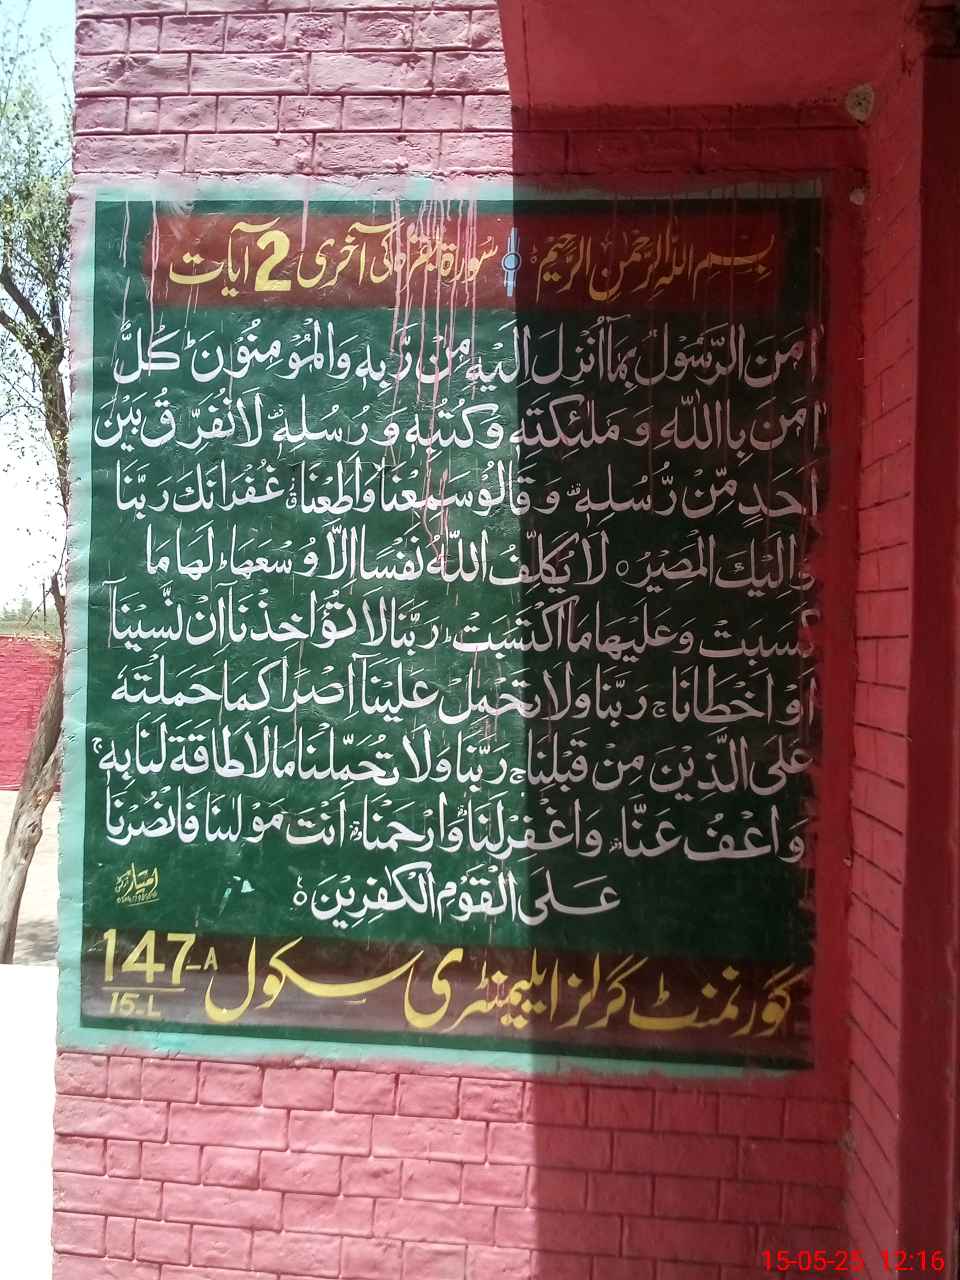 بِسْمِ اللّٰهِ الرَّحْمٰنِ الرَّحِيْمِ
سُورۃ بقرہ کی آخری 2 آیات
اٰمَنَ الرَّسُوْلُ بِمَآ اُنْزِلَ اِلَيْهِ مِنْ رَّبِّهٖ وَالْمُؤْمِنُوْنَ ؕ كُلٌّ
اٰمَنَ بِاللّٰهِ وَ مَلٰٓئِكَتِهٖ وَكُتُبِهٖ وَ رُسُلِهٖ لَا نُفَرِّقُ بَيْنَ
اَحَدٍ مِّنْ رُّسُلِهٖ وَ قَالُوْ سَمِعْنَا وَاَطَعْنَا غُفْرَانَكَ رَبَّنَا
وَاِلَيْكَ الْمَصِيْرُ ○ لَا يُكَلِّفُ اللّٰهُ نَفْسًا اِلَّا وُسْعَهَا ؕ لَهَا مَا
كَسَبَتْ وَعَلَيْهَا مَا اكْتَسَبَتْ ؕ رَبَّنَا لَا تُؤَاخِذْنَا اِنْ نَّسِيْنَآ
اَوْ اَخْطَاْنَا ۚ رَبَّنَا وَلَا تَحْمِلْ عَلَيْنَآ اِصْرًا كَمَا حَمَلْتَهٗ
عَلَى الَّذِيْنَ مِنْ قَبْلِنَا ۚ رَبَّنَا وَلَا تُحَمِّلْنَا مَا لَا طَاقَةَ لَنَا بِهٖ ۚ
وَاعْفُ عَنَّا وَاغْفِرْ لَنَا وَارْحَمْنَا اَنْتَ مَوْلٰىنَا فَانْصُرْنَا
عَلَى الْقَوْمِ الْكٰفِرِيْنَ ○
امتیاز
گورنمنٹ گرلز ایلیمنٹری سکول 147-A
15-L
15-05-25 12:16